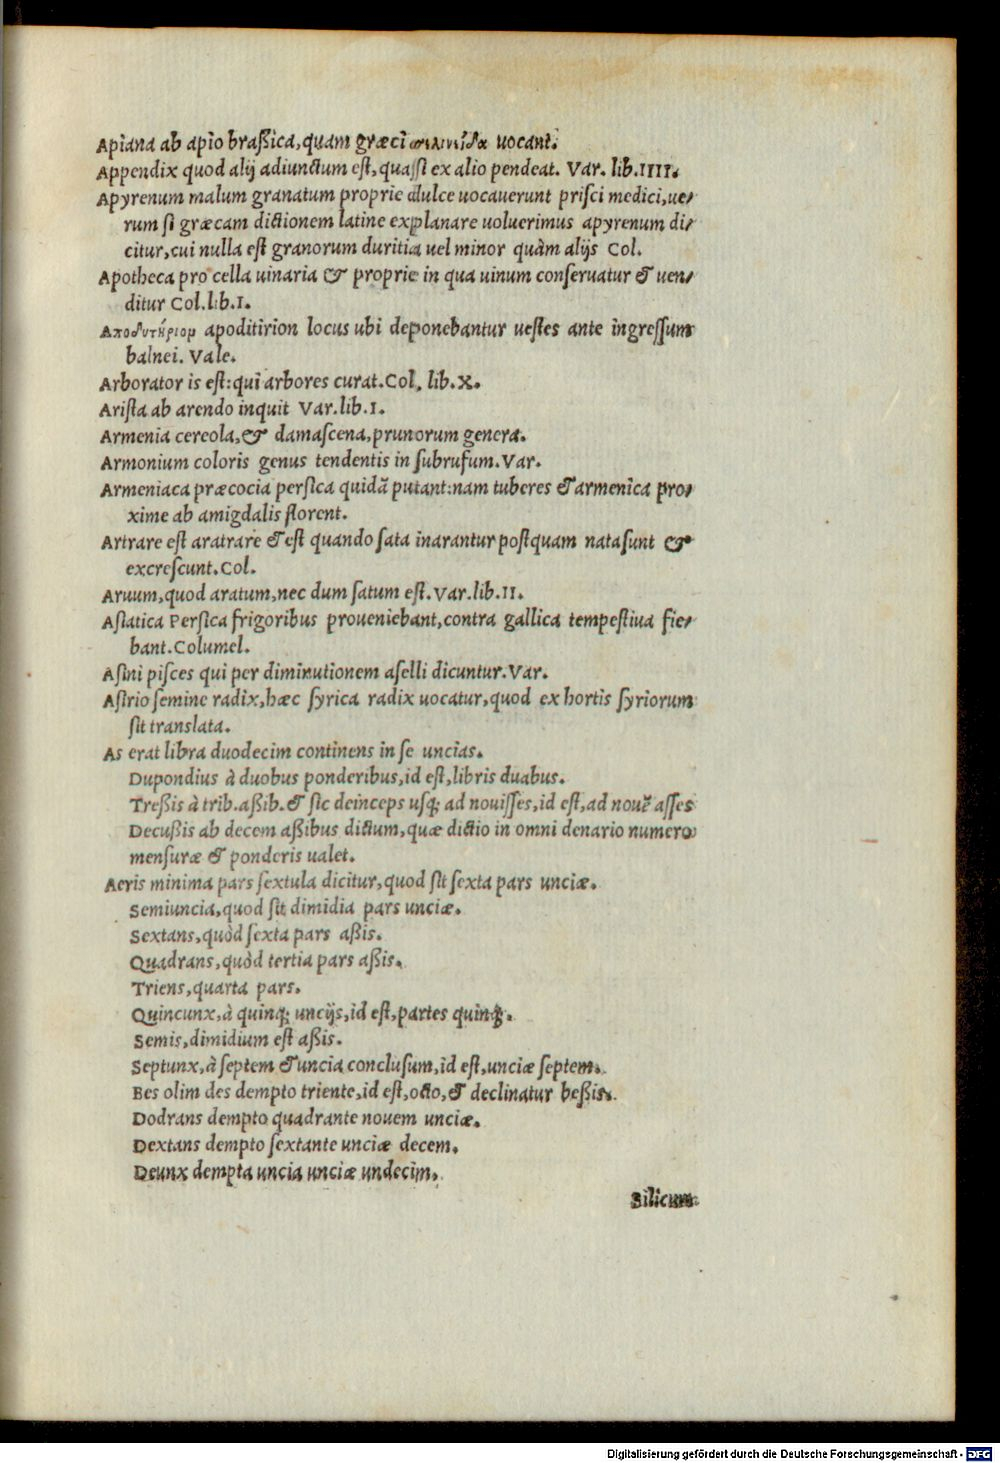 Apiana ab apio braßica,quam græci σελινίδα uocant.
Appendix quod alij adiunctum est,quassi ex alio pendeat. Var. lib.IIII.
Apyrenum malum granatum proprie dulce uocauerunt prisci medici,ue/
rum si græcam dictionem latine explanare uoluerimus apyrenum di/
citur,cui nulla est granorum duritia uel minor quàm alijs Col.
Apotheca pro cella uinaria & proprie in qua uinum conseruatur & uen/
ditur Col.lib.I.
Αποδυτήριομ apoditirion locus ubi deponebantur uestes ante ingressum
balnei. Vale.
Arborator is est:qui arbores curat.Col. lib.X.
Arista ab arendo inquit Var.lib.I.
Armenia cereola,& damascena,prunorum genera.
Armonium coloris genus tendentis in subrufum.Var.
Armeniaca præcocia persica quidã putant:nam tuberes & armenica pro/
xime ab amigdalis florent.
Artrare est aratrare & est quando sata inarantur postquam nata sunt &
excrescunt.Col.
Aruum,quod aratum,nec dum satum est.Var.lib.II.
Asiatica Persica frigoribus proueniebant,contra gallica tempestiua fie/
bant.Columel.
Asini pisces qui per diminutionem aselli dicuntur.Var.
Asirio semine radix,hæc syrica radix uocatur,quod ex hortis syriorum
sit translata.
As erat libra duodecim continens in se uncias.
Dupondius à duobus ponderibus,id est,libris duabus.
Treßis à trib.aßib.& sic deinceps usq; ad nouisses,id est,ad nouẽ asses
Decußis ab decem aßibus dictum,quæ dictio in omni denario numero
mensuræ & ponderis ualet.
Aeris minima pars sextula dicitur,quod sit sexta pars unciæ.
Semiuncia,quod sit dimidia pars unciæ.
Sextans,quòd sexta pars aßis.
Quadrans,quòd tertia pars aßis.
Triens,quarta pars.
Quincunx,à quinq; uncijs,id est,partes quinq;.
Semis,dimidium est aßis.
Septunx,à septem & uncia conclusum,id est,unciæ septem.
Bes olim des dempto triente,id est,octo,& declinatur beßis.
Dodrans dempto quadrante nouem unciæ.
Dextans dempto sextante unciæ decem.
Deunx dempta uncia unciæ undecim.
Silicum
Digitalisierung gefördert durch die Deutsche Forschungsgemeinschaft - DFG